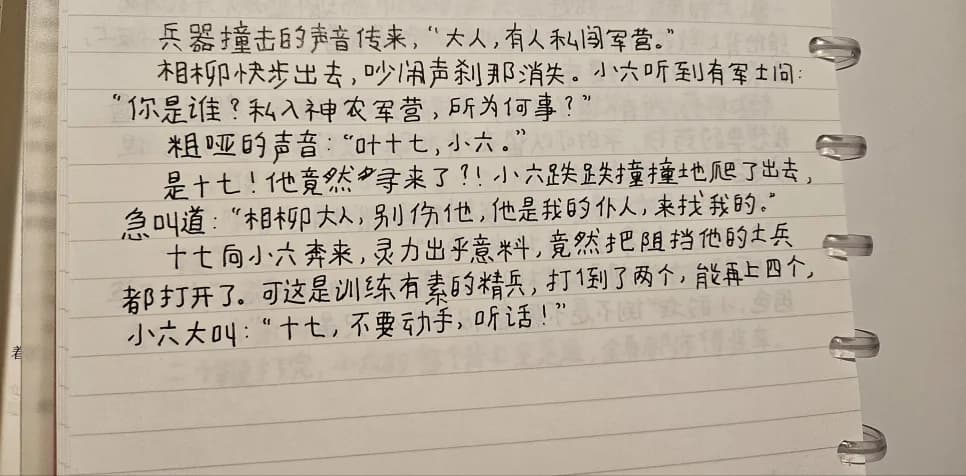 兵器撞击的声音传来，“大人，有人私闯军营。”
相柳快步出去，吵闹声刹那消失。小六听到有军士问：
“你是谁？私入神农军营，所为何事？”
粗哑的声音：“叶十七，小六。”
是十七！他竟然寻来了？！小六跌跌撞撞地爬了出去，
急叫道：“相柳大人，别伤他，他是我的仆人，来找我的。”
十七向小六奔来，灵力出乎意料，竟然把阻挡他的士兵
都打开了。可这是训练有素的精兵，打倒了两个，能再上四个，
小六大叫：“十七，不要动手，听话！”
着